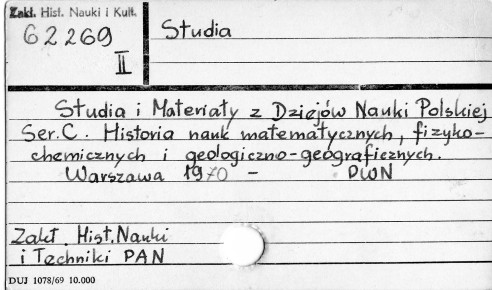 Zakł. Hist. Nauki i Kult.
62269
II
Studia
Studia i Materiały z Dziejów Nauki Polskiej
Ser. C. Historia nauk matematycznych, fizyko-
chemicznych i geologiczno-geograficznych.
Warszawa 1970 - PWN
Zakł. Hist. Nauki
i Techniki PAN
DUJ 1078/69 10.000